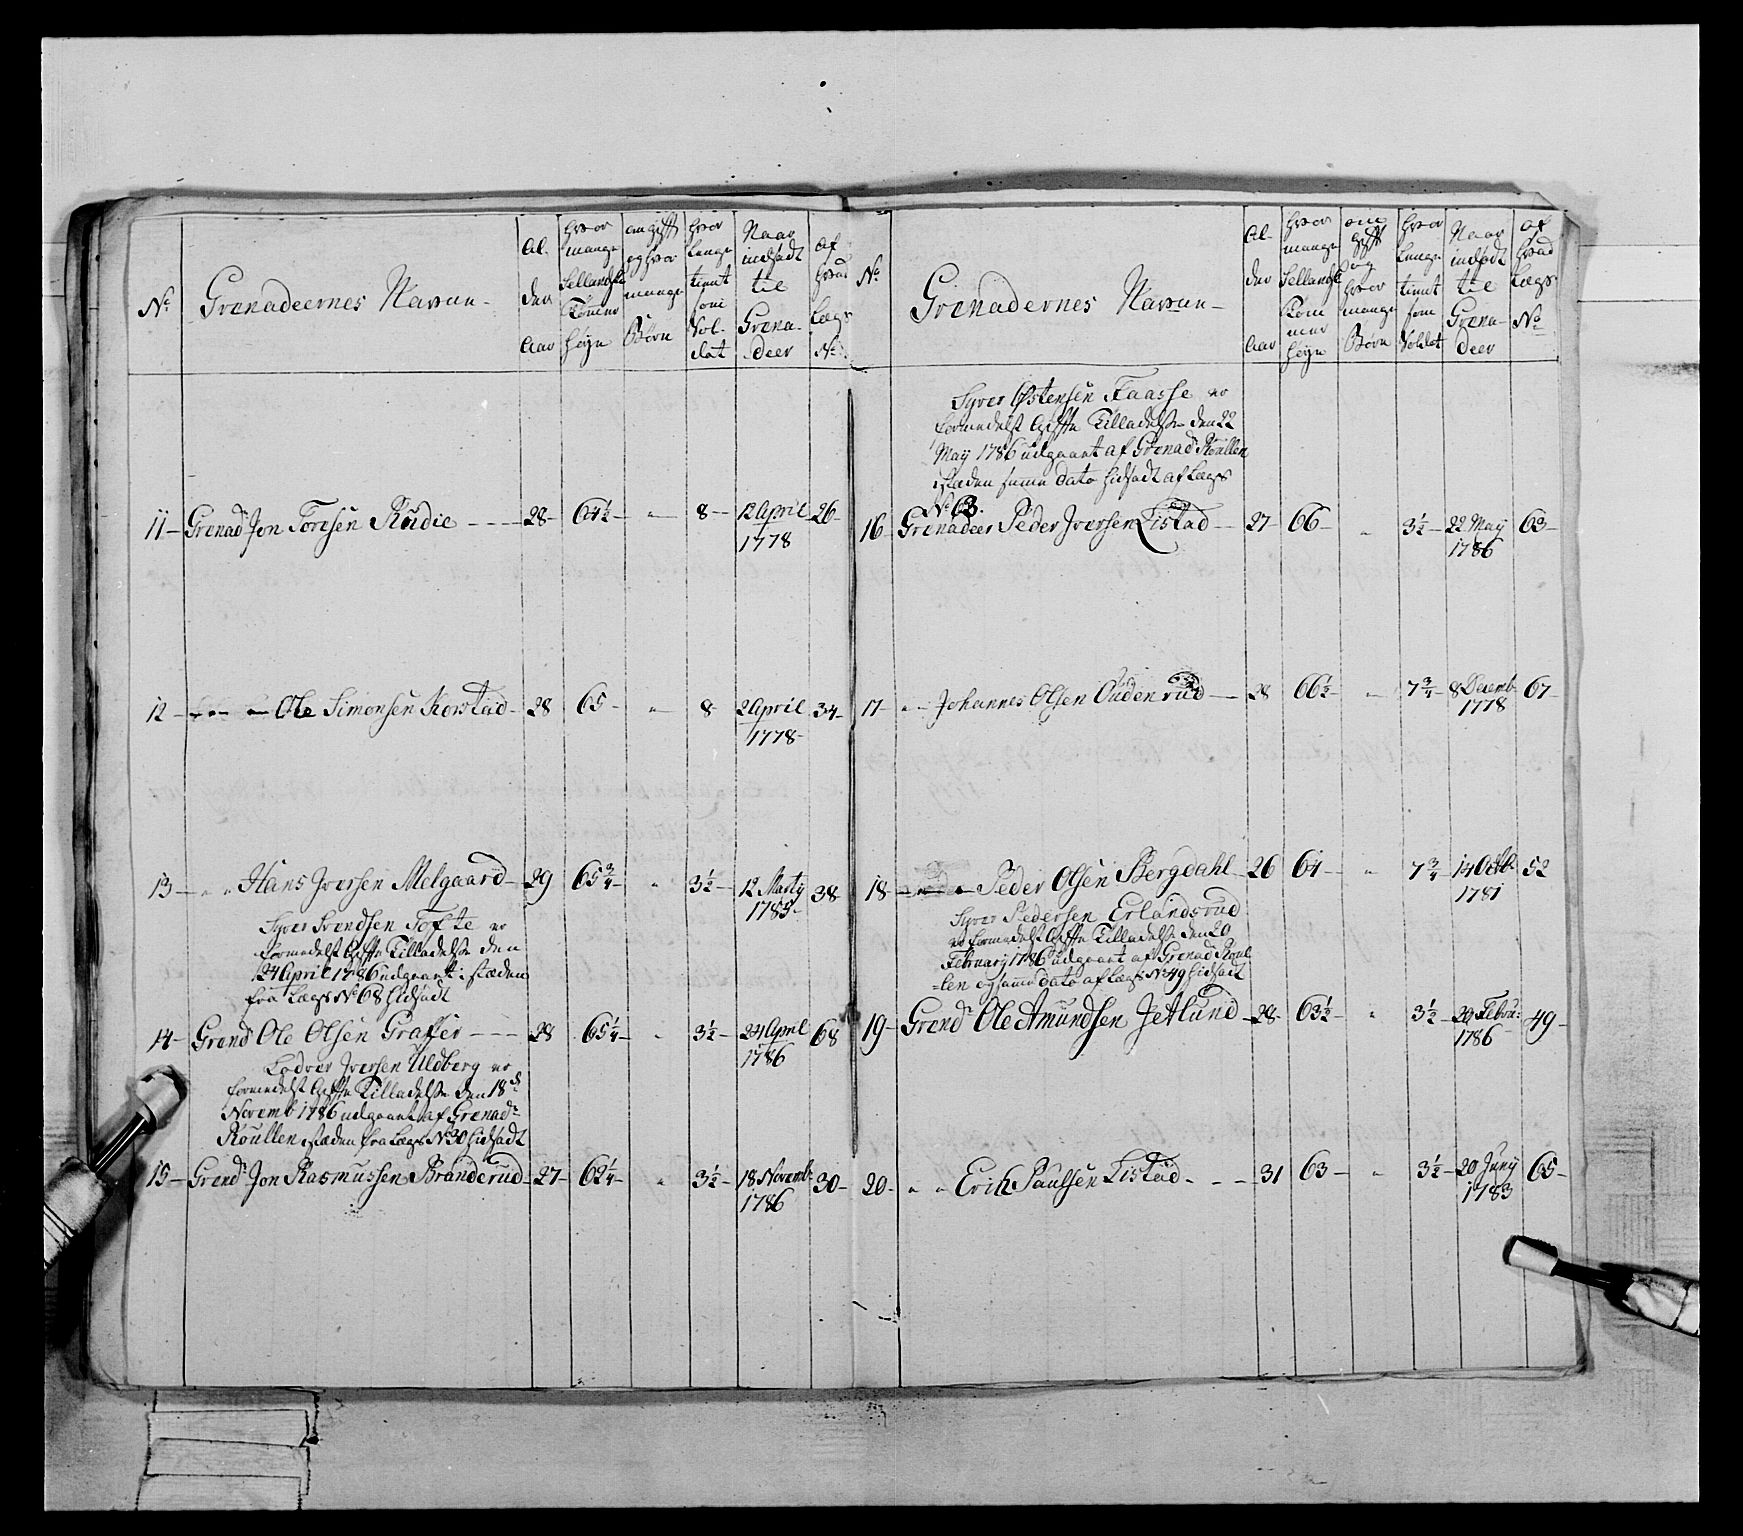 N:
Grenadeernes Navne -
Al-
der
Aar
hvor
mange
Sellandske
Tommer
høyn
om gift
og hvor
mange
Børn
hvor
lenge
tient
som
Sol-
dat
Naar
indsadt
til
Grena-
deer
af
hvad
Lægs
N:
11 - Grenad: Jon Toresen Rudie - - - 28 - 64½ - " - 8 - 12 April 1778 26 -
12 - Ole Simonsen Korstad - 28 65 - " - 8 - 2 April 1778 - 34 -
13 - " " Hans Iversen Melgaard - 29 65¾ - " 3½ - 12 Marty 1783 - 38
Syver Svendsen Tofte er
formedelst Gifte Tilladelse den
24 April 1786 udgaaet i stæden
fra Lægs No 68 hidsadt
14 - Grend: Ole Olsen Graffer - - - 28 65¼ - " 3½ - 24 April 1786 68
Iversen Uldberg er
formedelst Gifte Tilladelse den 18de
Novemb 1786 udgaaet af Grenad:
Roullen istæden fra Lægs No 30 hidsadt
15 - Grend: Jon Rasmussen Branderud - 27 - 62¼ - " 3½ - 18 Novemb 1786 30 -
No
Grenadernes Navne -
Al-
der
Aar
hvor
mange
Sellandske
Tom
mer
høyn
om
gift
og
hvor
mange
Børn
hvor
lenge
tient
som
Soldat
Naar
indsadt
til
Grena-
deer
af
hvad
Lægs
No
Syver Østensen Faasse er
formedelst Gifte Tilladelse den 22
May 1786 udgaaet af Grenad: Roullen
istæden samme dato hidsadt af Lægs
No 63.
16 - Grenadeer Peder Iversen Listad - 27 - 66 - " 3½ - 22 May 1786 63 -
17 - " - Johannes Olsen Oudenrud - 28 66½ - 7¾ - 8 Decemb 1778 67 -
18 - Peder Olsen Bergdahl - 26 64 - " 7¾ - 14 Octb: 1781 52
Syver Pedersen Erlandsrud
er formedelst Gifte Tilladelse den 20
February 1786 udgaaet af Grenad Roul
-len og samme dato af Lægs No 49 hidsadt
19 - Grend: Ole Amundsen Jetlund - 28 - 63½ - " 3½ - 20 Febru: 1786 - 49 -
20 - " " Erich Paulsen Listad - - - 31 63 - " 3½ - 20 Juny 1783 65 -